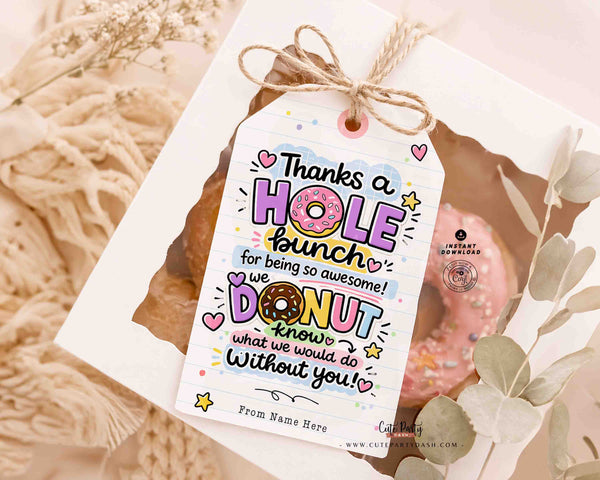 Thanks a
HOLE
bunch
for being so awesome!
we
DONUT
know
what we would do
Without you!
From Name Here
INSTANT
DOWNLOAD
Cute Party
DASH
- WWW.CUTEPARTYDASH.COM -